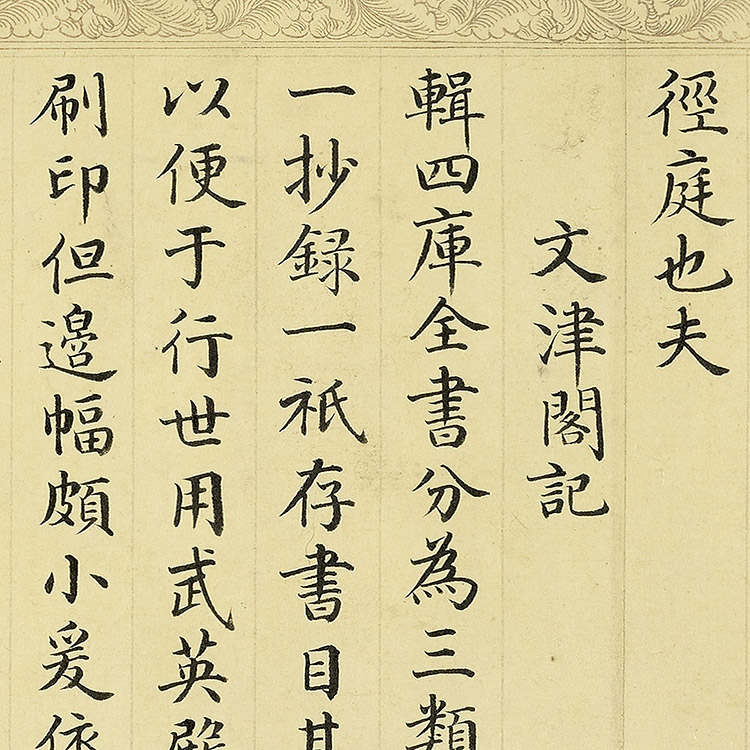 徑庭也夫
文津閣記
輯四庫全書分為三類
一抄錄一祇存書目其
以便于行世用武英殿
刷印但邊幅頗小爰依